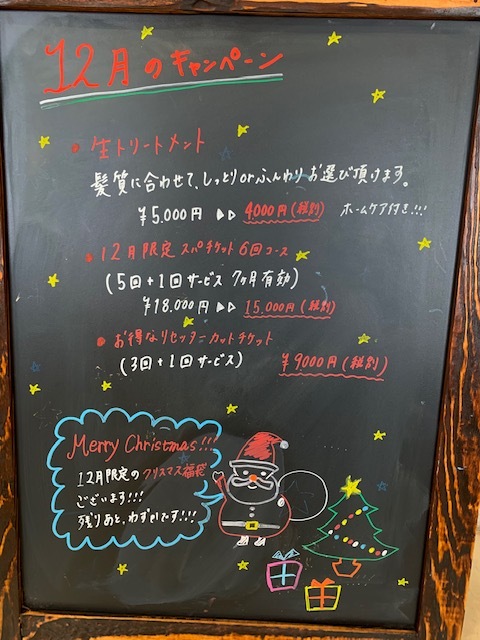 12月のキャンペーン
• 生トリートメント
髪質に合わせて、しっとりorふんわりお選び頂けます。
¥5.000円 ▷▷ 4000円(税別) ホームケア付き!!!
• 12月限定 スパチケット6回コース
(5回+1回サービス 7ヶ月有効)
¥18.000円 ▷▷ 15.000円(税別)
• お得なリセッターカットチケット
(3回+1回サービス) ¥9000円(税別)
Merry Christmas!!!
12月限定のクリスマス福袋
ございます!!!
残りあと、わずかです!!!